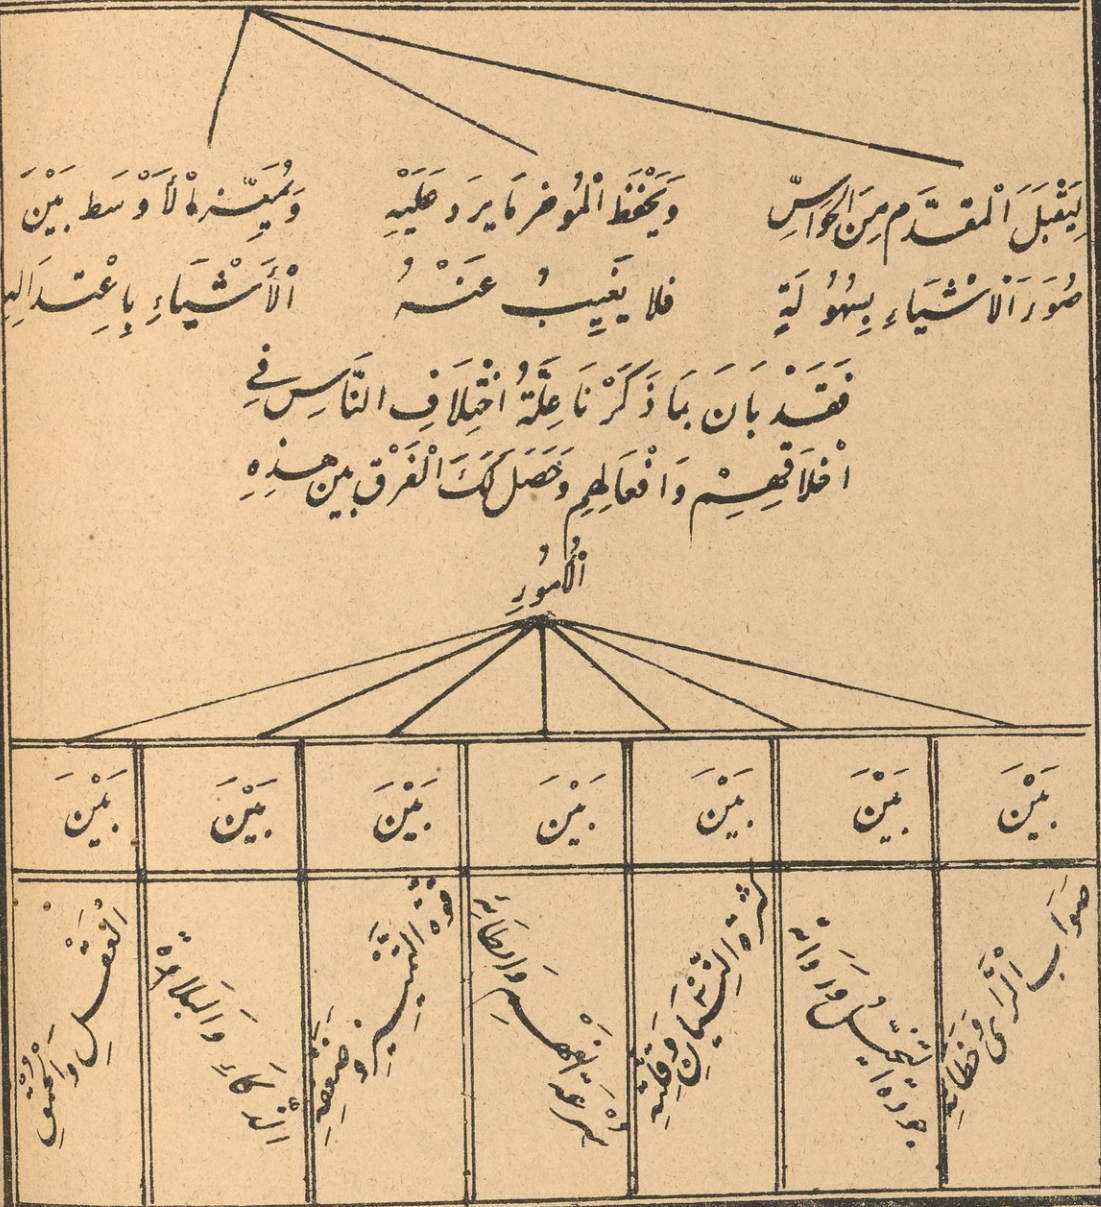 لِيَقْبَلَ الْمقدَّم مِنَ الْحَوَاسِّ
صُوَرَ الْاشْيَاءِ بِسُهُولَةٍ
وَيَحْفَظَ الْمُوخر مَا يرَد عَلَيْهِ
فلا يَغِيبُ عَنْهُ
وَيُمَيِّزهُ الْأَوْسَط بَيْنَ
الْأَشْيَاءِ بِاعْتدَالِهِ
فَقَدْ بَانَ بمَا ذَكَرْنَا عِلَّةُ اخْتِلَافِ النَّاسِ فِي
اخْلَاقِهِمْ وَافْعَالِهِمِ وَحَصَلَ لَكَ الْفَرْق بين هذِهِ
الْأُمُورِ
بَيْنَ بَيْنَ بَيْنَ بَيْنَ بَيْنَ بَيْنَ بَيْنَ
صَوَاب الْرَّاى وَخَطَائِهِ
جودة التخَيُّل وَرَدَائه
كثرة النِّسْيَانِ وَقِلَّتِهِ
سُرْعَةِ الْفهمِ وَابطَائِهِ
قوة التَّمْيِيزِ وضَعْفِهِ
الذكَاءِ وَالبَلَادَة
الْعَقْلِ وَالْحُمْقِ